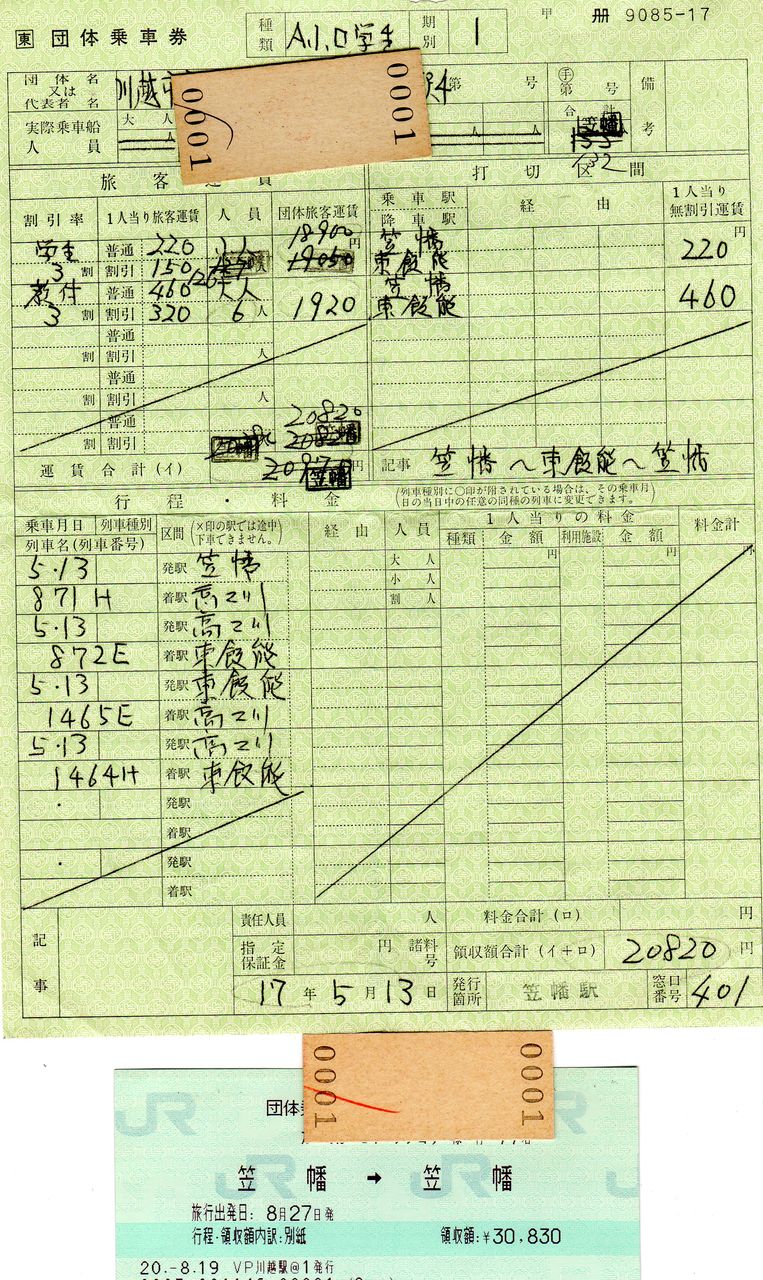 東 団体乗車券 種類 A.I.ロ学生 期別 1 甲 冊 9085-17
団体名又は代表者名 川越市 第 号 手 第 号 備考
実際乗車船人員 大人 人 人 合計 笠幡 人
132
旅客運賃 打切区間
割引率 1人当り旅客運賃 人員 団体旅客運賃 乗車駅 降車駅 経由 1人当り無割引運賃
18900
学生 普通 220 小人 円 笠幡 220 円
3割 割引 150 126 人 19050 東飯能
教付 普通 460 大人 笠幡 460
3割 割引 320 6人 1920 東飯能
普通
割 割引 人
普通
割 割引 人
普通 20820
割 割引 笠幡
運賃合計(イ) 笠幡 円 記事 笠幡〜東飯能〜笠幡
行程・料金 (列車種別に○印が付されている場合は、その乗車月日の当日中の任意の同種の列車に変更できます。)
乗車月日 列車種別 区間 (×印の駅では途中下車できません。) 経由 人員 1人当りの料金 料金計
列車名(列車番号) 種類 金額 利用施設 金額
5・13 発駅 笠幡 大人 円 円 円
小人
871H 着駅 高マ川 割人
5・13 発駅 高マ川
872E 着駅 東飯能
5・13 発駅 東飯能
1465E 着駅 高マ川
5・13 発駅 高マ川
1464H 着駅 東飯能
・ 発駅
着駅
・ 発駅
着駅
記事 責任人員 人 料金合計(ロ) 円
指定保証金 円 諸料号 領収額合計(イ+ロ) 20820 円
17年5月13日 発行箇所 笠幡駅 窓口番号 401
0001 0001
0001 0001
団体
笠幡 → 笠幡
旅行出発日: 8月27日発
行程・領収額内訳:別紙 領収額:¥30,830
20.-8.19 VP川越駅@1発行